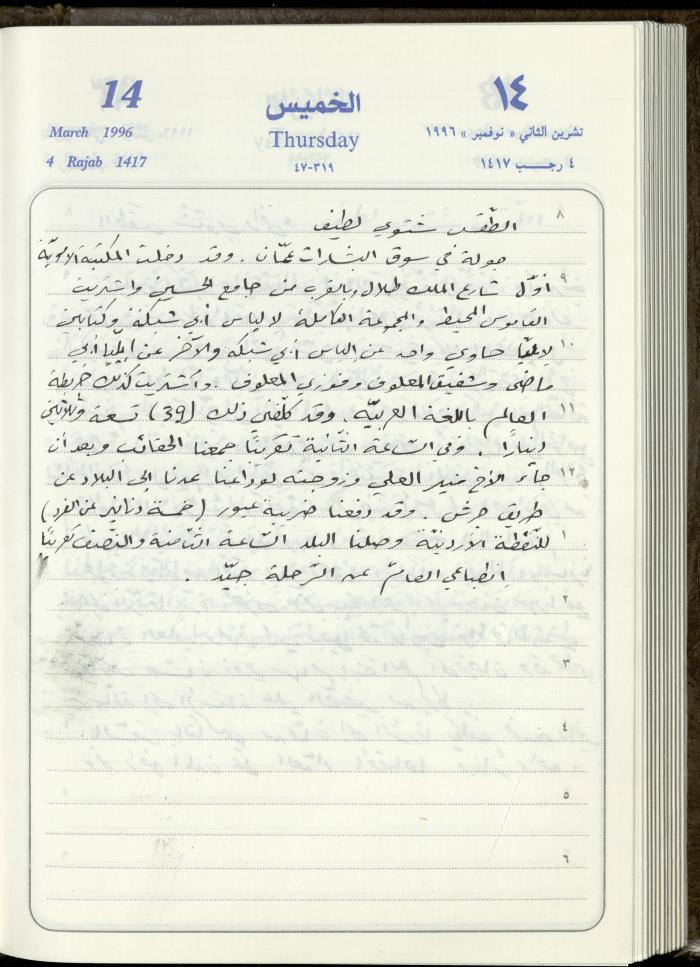 14
١٤
الخميس
March 1996
Thursday
تشرين الثاني « نوفمبر » ١٩٩٦
4 Rajab 1417
٣١٩-٤٧
٤ رجب ١٤١٧
٨
الطّقس شتوي لطيف
جولة في سوق البشارات عمّان . وقد دخلت المكتبة الأمويّة
٩
أوّل شارع الملك طلال بالقرب من جامع الحسين واشتريت
القاموس المحيط والمجموعة الكاملة لالياس أبي شبكة وكتابين
١٠
لايليّا حاوي واحد عن الياس أبي شبكه والآخر عن إيليّا أبي
ماضي وشفيق المعلوف وفوزي المعلوف . واشتريت كذلك خريطة
١١
العالم باللغة العربيّة . وقد كلّفني ذلك (39) تسعة وثلاثين
دينارًا . وفي السّاعة الثّانية تقريبًا جمعنا الحقائب وبعد أن
١٢
جاء الأخ منير العلي وزوجته لوداعنا عدنا الى البلاد عن
طريق جرش . وقد دفعنا ضريبة عبور (خمسة دنانير عن الفرد)
١
للنّقطة الأردنيّة وصلنا البلد السّاعة الثّامنة والنصف تقريبًا
انطباعي العام عن الرّحلة جيّد .
٢
٣
٤
٥
٦